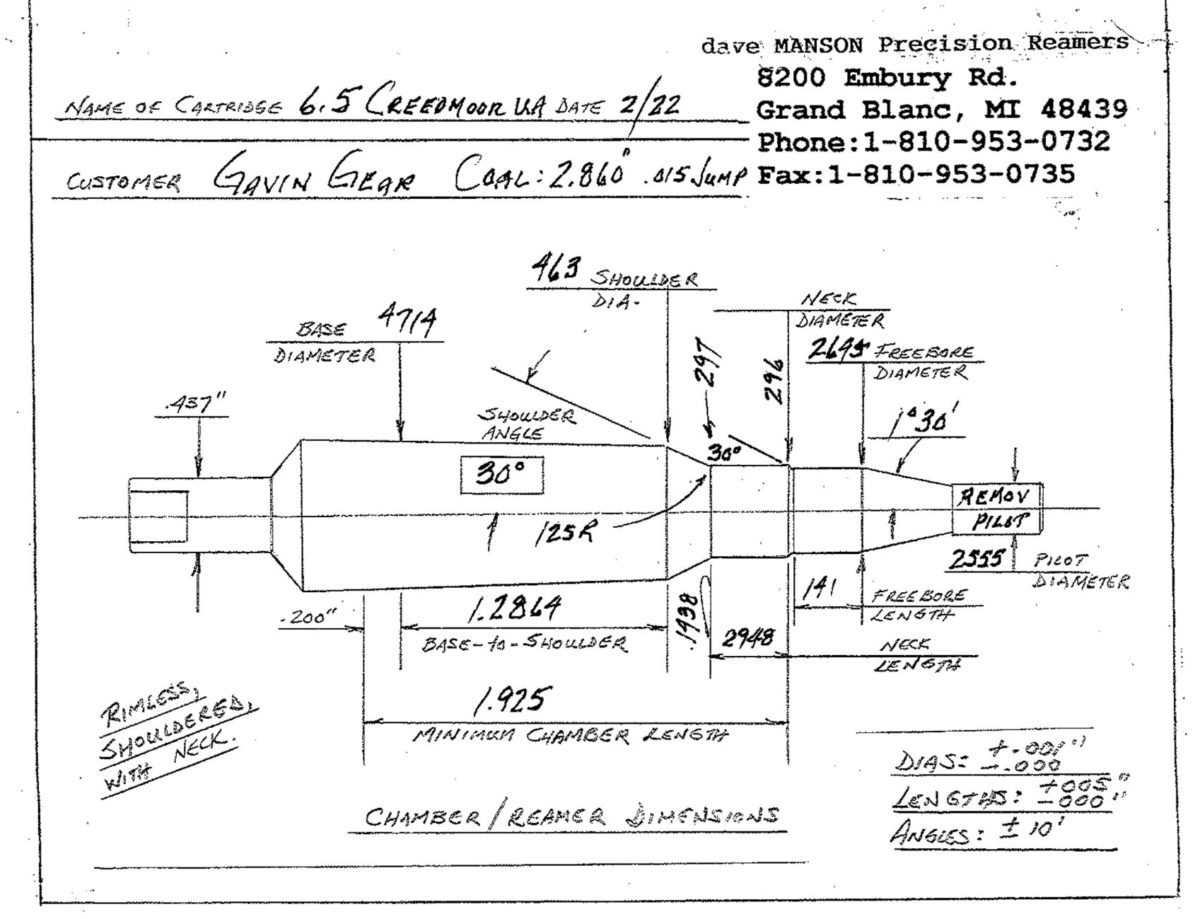 dave MANSON Precision Reamers
8200 Embury Rd.
Grand Blanc, MI 48439
Phone:1-810-953-0732
Fax:1-810-953-0735
NAME OF CARTRIDGE 6.5 CREEDMOOR UA DATE 2/22
CUSTOMER GAVIN GEAR COAL: 2.860" .015 JUMP
463 SHOULDER
DIA.
BASE 4714
DIAMETER
NECK
DIAMETER
296
297
2645 FREEBORE
DIAMETER
.437"
SHOULDER
ANGLE
30°
30°
1°30'
125R
REMOV
PILOT
2555 PILOT
DIAMETER
.200"
1.2864
BASE-to-SHOULDER
.1438
2948
NECK
LENGTH
141
FREEBORE
LENGTH
1.925
MINIMUM CHAMBER LENGTH
RIMLESS,
SHOULDERED,
WITH NECK.
CHAMBER/REAMER DIMENSIONS
DIAS: +.001"
-.000
LENGTHS: +005"
-000"
ANGLES: ± 10'